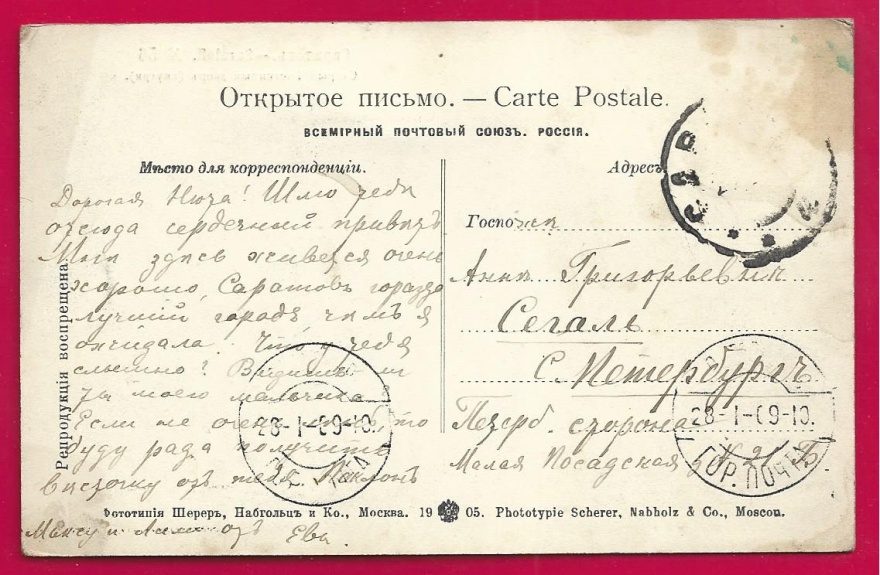 Открытое письмо. — Carte Postale.
ВСЕМІРНЫЙ ПОЧТОВЫЙ СОЮЗЪ. РОССІЯ.
Мѣсто для корреспонденціи.
Адресъ
Дорогая Нюза! Шлю тебѣ
отсюда сердечный привѣтъ
Мнѣ здѣсь живется очень
хорошо, Саратовъ гораздо
лучшій городъ чѣмъ я
ожидала. Что у тебя
слышно? Видишь ли
ты моего мальчика?
Если не очень
буду рада получить
весточку отъ тебя. Поклонъ
Максу и отъ
Ева.
Репродукція воспрещена.
Госпожѣ
Аннѣ Григорьевнѣ
Сегаль
С. Петербургъ
Петерб. сторона
Малая Посадская
САР
28-1-09-10.
28-1-09-10.
ГОР. ПОЧТА
Фототипія Шереръ, Набгольцъ и Ко., Москва. 19 05. Phototypie Scherer, Nabholz & Co., Moscou.